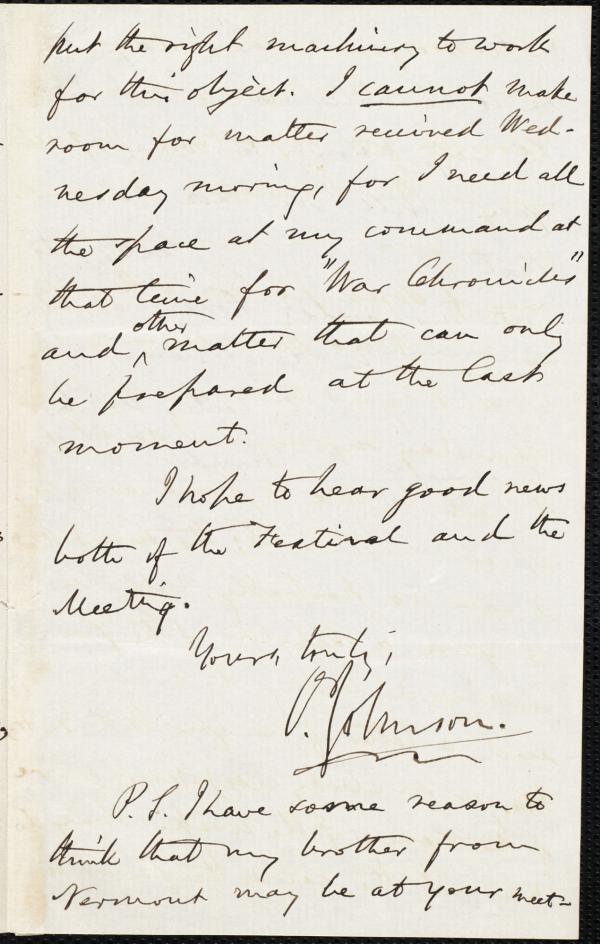 put the right machinery to work
for this object. I cannot make
room for matter received Wed-
nesday morning, for I need all
the space at my command at
that time for "War Chronicles"
and ^other matter that can only
be prepared at the last
moment.
I hope to hear good news
both of the Festival and the
Meeting.
Yours, truly,
O. Johnson.
P.S. I have some reason to
think that my brother from
Vermont may be at your meet-